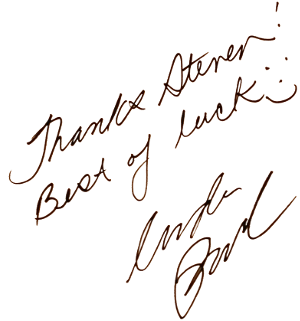 Thanks Steven!
Best of luck